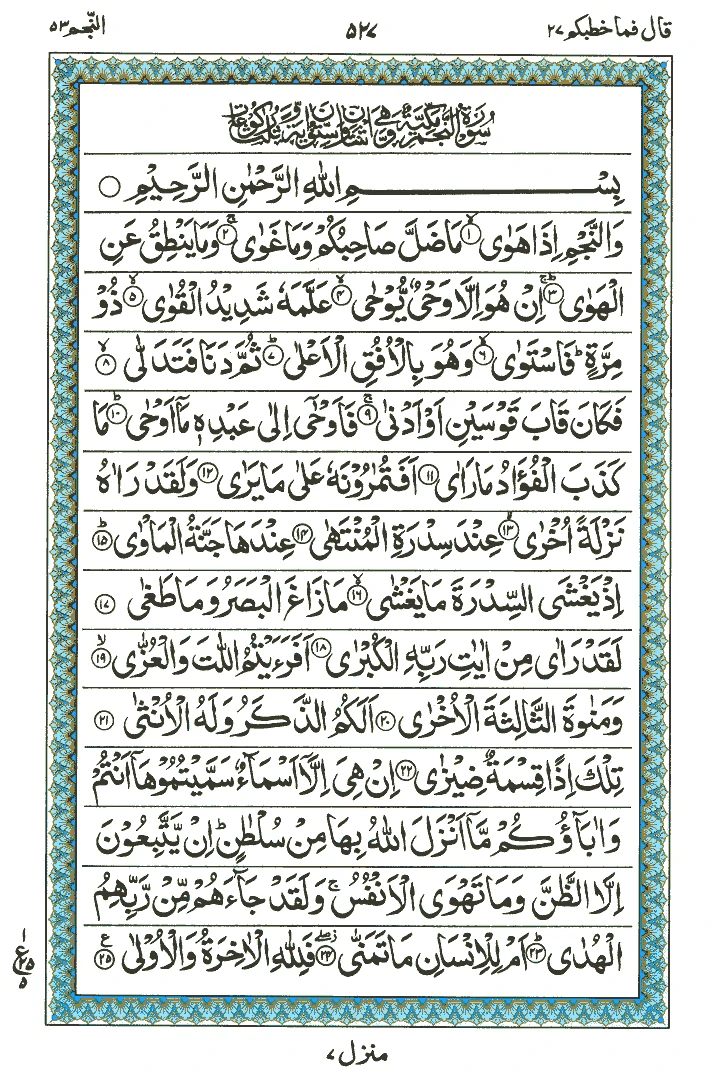 قال فما خطبکم ۲۷ ۵۲۷ النّجم ۵۳
سُوْرَةُ النَّجْمِ مَكِّيَّةٌ وَّهِيَ اثْنَتَانِ وَسِتُّوْنَ اٰيَةً وَّثَلٰثُ رُكُوْعَاتٍ
بِسْمِ اللهِ الرَّحْمٰنِ الرَّحِيْمِ ○
وَالنَّجْمِ اِذَا هَوٰى ۙ﴿۱﴾ مَا ضَلَّ صَاحِبُكُمْ وَمَا غَوٰى ۚ﴿۲﴾ وَمَا يَنْطِقُ عَنِ
الْهَوٰى ؕ﴿۳﴾ اِنْ هُوَ اِلَّا وَحْيٌ يُّوْحٰى ۙ﴿۴﴾ عَلَّمَهٗ شَدِيْدُ الْقُوٰى ۙ﴿۵﴾ ذُوْ
مِرَّةٍ ؕ فَاسْتَوٰى ۙ﴿۶﴾ وَهُوَ بِالْاُفُقِ الْاَعْلٰى ؕ﴿۷﴾ ثُمَّ دَنَا فَتَدَلّٰى ۙ﴿۸﴾
فَكَانَ قَابَ قَوْسَيْنِ اَوْ اَدْنٰى ۚ﴿۹﴾ فَاَوْحٰۤى اِلٰى عَبْدِهٖ مَاۤ اَوْحٰى ؕ﴿۱۰﴾ مَا
كَذَبَ الْفُؤَادُ مَا رَاٰى ﴿۱۱﴾ اَفَتُمٰرُوْنَهٗ عَلٰى مَا يَرٰى ﴿۱۲﴾ وَلَقَدْ رَاٰهُ
نَزْلَةً اُخْرٰى ۙ﴿۱۳﴾ عِنْدَ سِدْرَةِ الْمُنْتَهٰى ﴿۱۴﴾ عِنْدَهَا جَنَّةُ الْمَاْوٰى ؕ﴿۱۵﴾
اِذْ يَغْشَى السِّدْرَةَ مَا يَغْشٰى ۙ﴿۱۶﴾ مَا زَاغَ الْبَصَرُ وَمَا طَغٰى ﴿۱۷﴾
لَقَدْ رَاٰى مِنْ اٰيٰتِ رَبِّهِ الْكُبْرٰى ﴿۱۸﴾ اَفَرَءَيْتُمُ اللّٰتَ وَالْعُزّٰى ۙ﴿۱۹﴾
وَمَنٰوةَ الثَّالِثَةَ الْاُخْرٰى ﴿۲۰﴾ اَلَكُمُ الذَّكَرُ وَلَهُ الْاُنْثٰى ﴿۲۱﴾
تِلْكَ اِذًا قِسْمَةٌ ضِيْزٰى ﴿۲۲﴾ اِنْ هِيَ اِلَّاۤ اَسْمَآءٌ سَمَّيْتُمُوْهَاۤ اَنْتُمْ
وَاٰبَآؤُكُمْ مَّاۤ اَنْزَلَ اللهُ بِهَا مِنْ سُلْطٰنٍ ؕ اِنْ يَّتَّبِعُوْنَ
اِلَّا الظَّنَّ وَمَا تَهْوَى الْاَنْفُسُ ۚ وَلَقَدْ جَآءَهُمْ مِّنْ رَّبِّهِمُ
الْهُدٰى ؕ﴿۲۳﴾ اَمْ لِلْاِنْسَانِ مَا تَمَنّٰى ۖ﴿۲۴﴾ فَلِلّٰهِ الْاٰخِرَةُ وَالْاُوْلٰى ﴿۲۵﴾ ع
۱
ع ۲۵
۵
منزل ۷